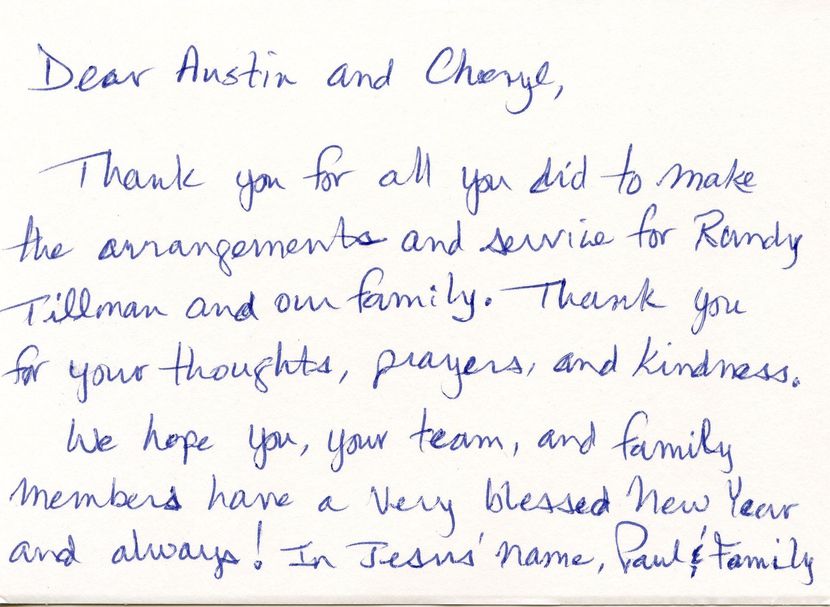 Dear Austin and Cheryl,
Thank you for all you did to make
the arrangements and service for Randy
Tillman and our family. Thank you
for your thoughts, prayers, and kindness.
We hope you, your team, and family
members have a very blessed New Year
and always! In Jesus' name, Paul & Family